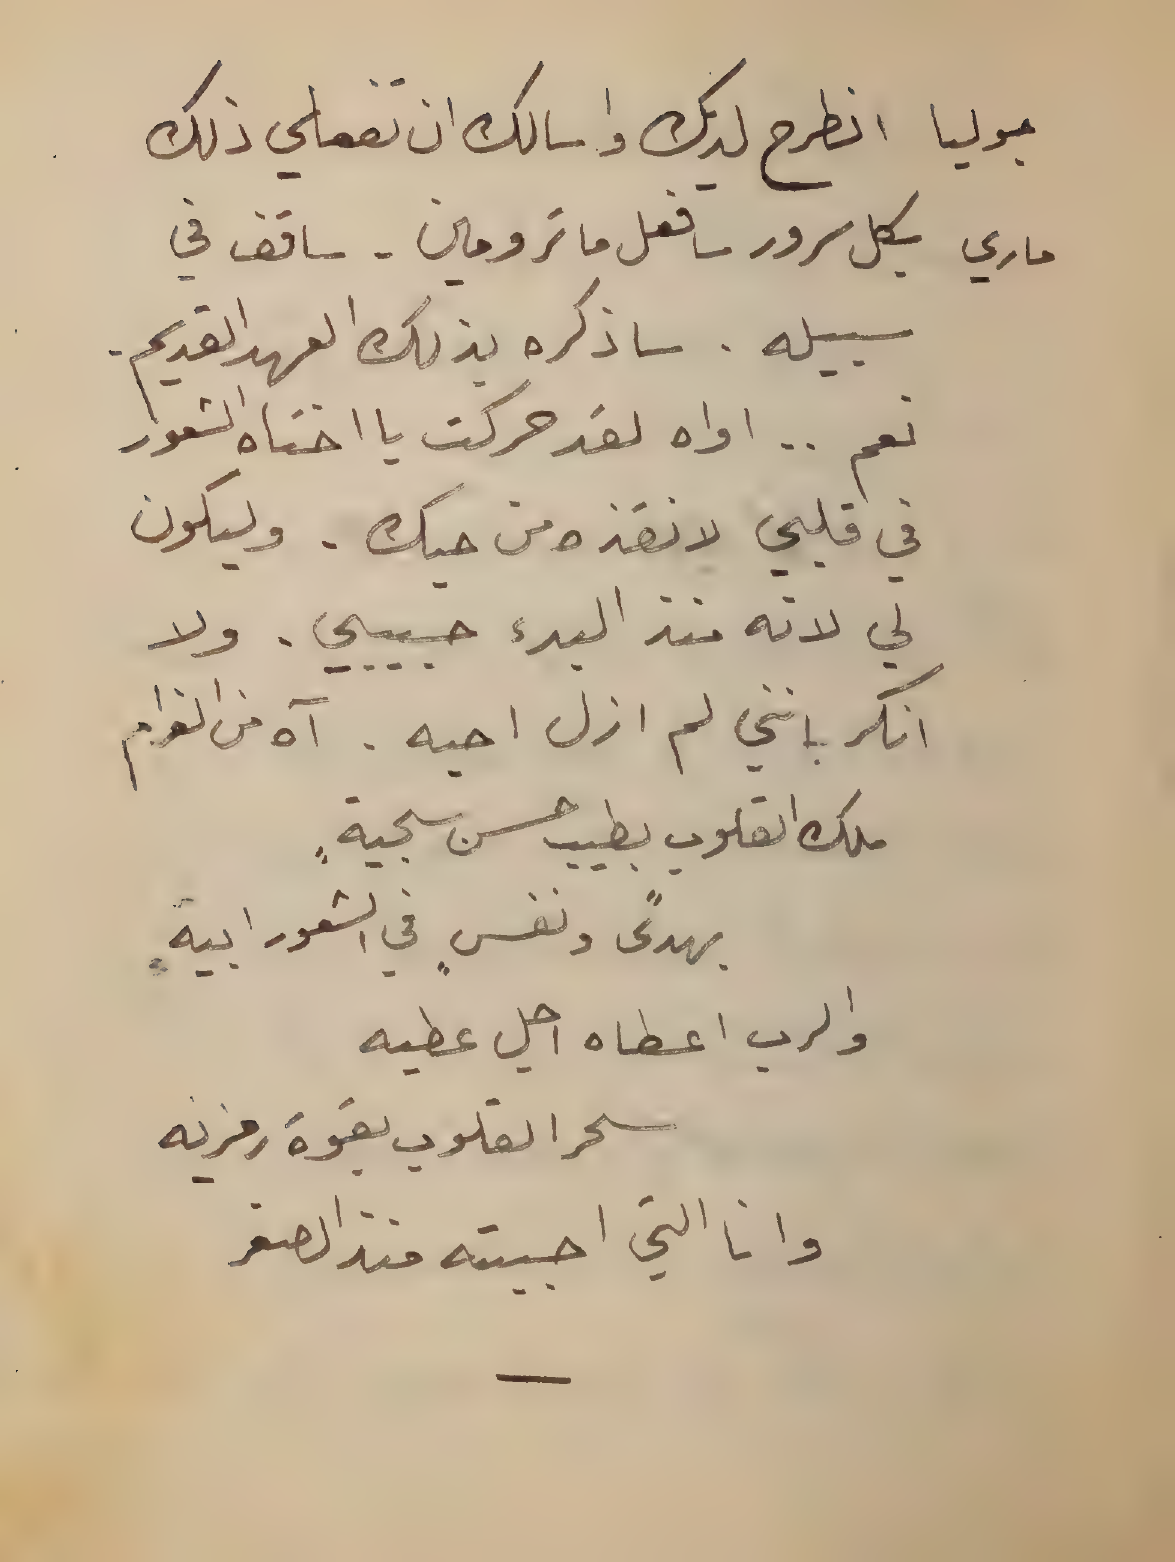 جوليا انطرح لديك واسالك ان تفعلي ذلك
ماري بكل سرور سافعل ما ترومين - ساقف في
سبيله . ساذكره بذلك العهد القديم .
نعم .. اواه لقد حركت يا اختاه الشعور
في قلبي لانقذه من حبك . وليكون
لي لانه منذ البدء حبيبي . ولا
انكر بانني لم ازل احبه . آه من الغرام
ملك القلوب بطيب حسن سجيةٍ
بهدىً ونفسٍ في الشعور ابيةٍ
والرب اعطاه اجل عطيه
سحر القلوب بقوة رمزيه
وانا التي احببته منذ الصغر